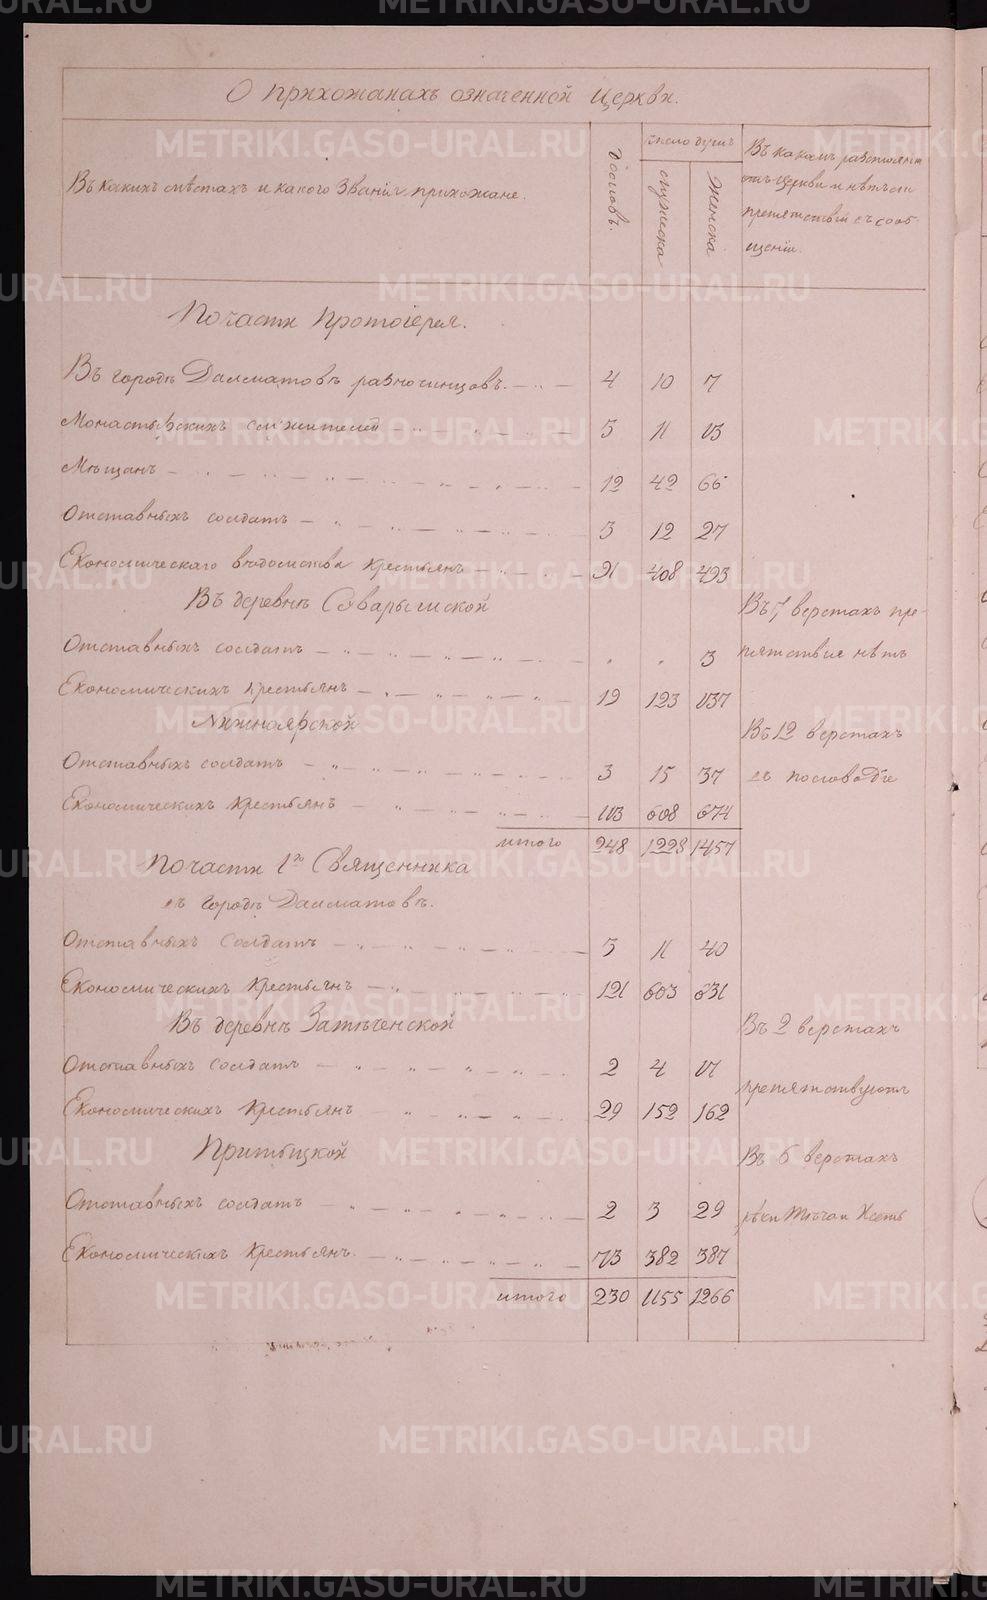 О прихожанахъ означенной Церкви.
Въ какихъ мѣстахъ и какого званія прихожане.
Дворовъ.
Число душъ
мужеска
женска
Въ какомъ разстоянiи
отъ Церкви и нѣтъ ли
препятствій въ сооб-
щеніи.
По части Протоіерея.
Въ городѣ Далматовѣ разночинцовъ. 4 10 7
Монастырскихъ служителей 5 11 13
Мѣщанъ 12 42 66
Отставныхъ солдатъ 3 12 27
Економическаго вѣдомства крестьянъ 91 408 493
Въ деревнѣ
Въ верстахъ пре-
Отставныхъ солдатъ 3
пятствiе нѣтъ
Економическихъ крестьянъ 19 123 137
Нижнеярской
Въ 12 верстахъ
Отставныхъ солдатъ 3 15 37
въ половодiе
Економическихъ крестьянъ 113 608 674
итого 248 1228 1457
По части 1го Священника
въ городѣ Далматовѣ.
Отставныхъ солдатъ 3 11 40
Економическихъ крестьянъ 121 603 631
Въ деревнѣ Затеченской
Въ 2 верстахъ
Отставныхъ солдатъ 2 4 17
препятствуютъ
Економическихъ крестьянъ 29 152 162
Притыцкой
Въ 6 верстахъ
Отставныхъ солдатъ 2 3 29
рѣки Теча и Исеть
Економическихъ крестьянъ. 73 382 387
итого 230 1155 1266
METRIKI.GASO-URAL.RU